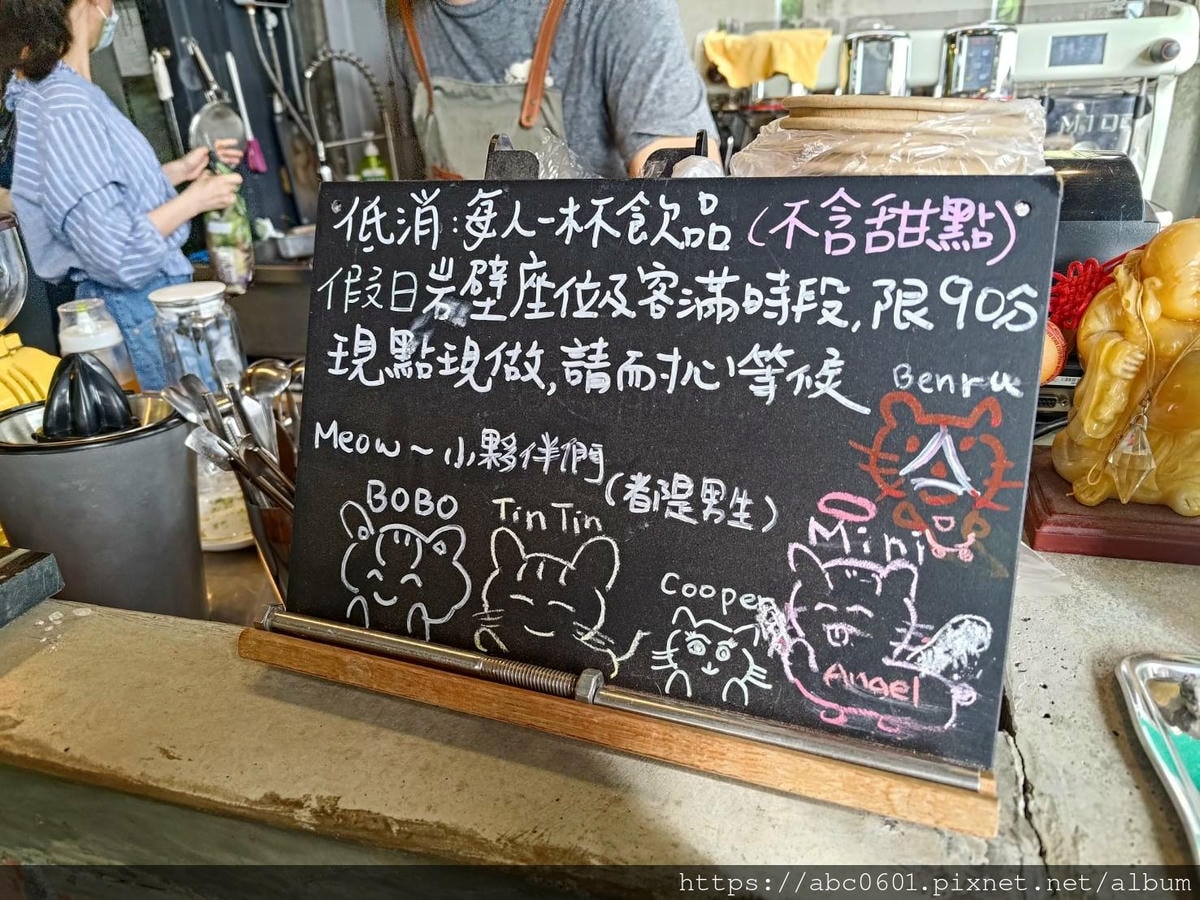 低消:每人一杯飲品(不含甜點)
假日岩壁座位及客滿時段,限90分
現點現做,請耐心等候
Benru
Meow~小夥伴們
(都是男生)
BOBO
TinTin
Mini
Cooper
Angel
M100
https://abc0601.pixnet.net/album